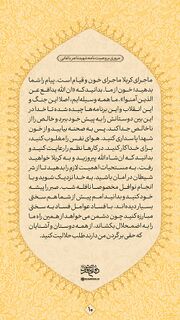 مروری بر وصیت‌نامه شهید
ماجرای کربلا ماجرای خون و قیام است. پیام را شما
بدهید؛ خون از ما. بدانید که «ان الله یدافع عن
الذین آمنوا». ما همه وسیله‌ایم، اصلا این جنگ و
این انقلاب و این برنامه‌ها چیده شده تا خدا در
این بین دوستانش را به پیش خود ببرد و خالص را از
ناخالص جدا کند. پس به صحنه بیایید و از خون
شهدا پاسداری کنید. هوای نفس را مغلوب کنید،
برای خدا کار کنید. در کارها نظم را رعایت کنید و
بدانید که ان‌شاءالله پیروزید و به کربلا خواهید
رفت. به مستحبات اهمیت لازم را بدهید تا از شر
شیطان در امان باشید. به خدا نزدیک شوید و با
انجام نوافل مخصوصا نافله شب. صبر را پیشه
خود کنید و بدانید امام پیش از شما هم سختی
بسیار دیده‌اند. با فساد عوامل فساد به سختی
مبارزه کنید چون دشمن می‌خواهد از همین راه ما
را به اضمحلال بکشاند. از همه دوستان و آشنایان
که حقی بر گردن من دارند طلب حلالیت کنید.